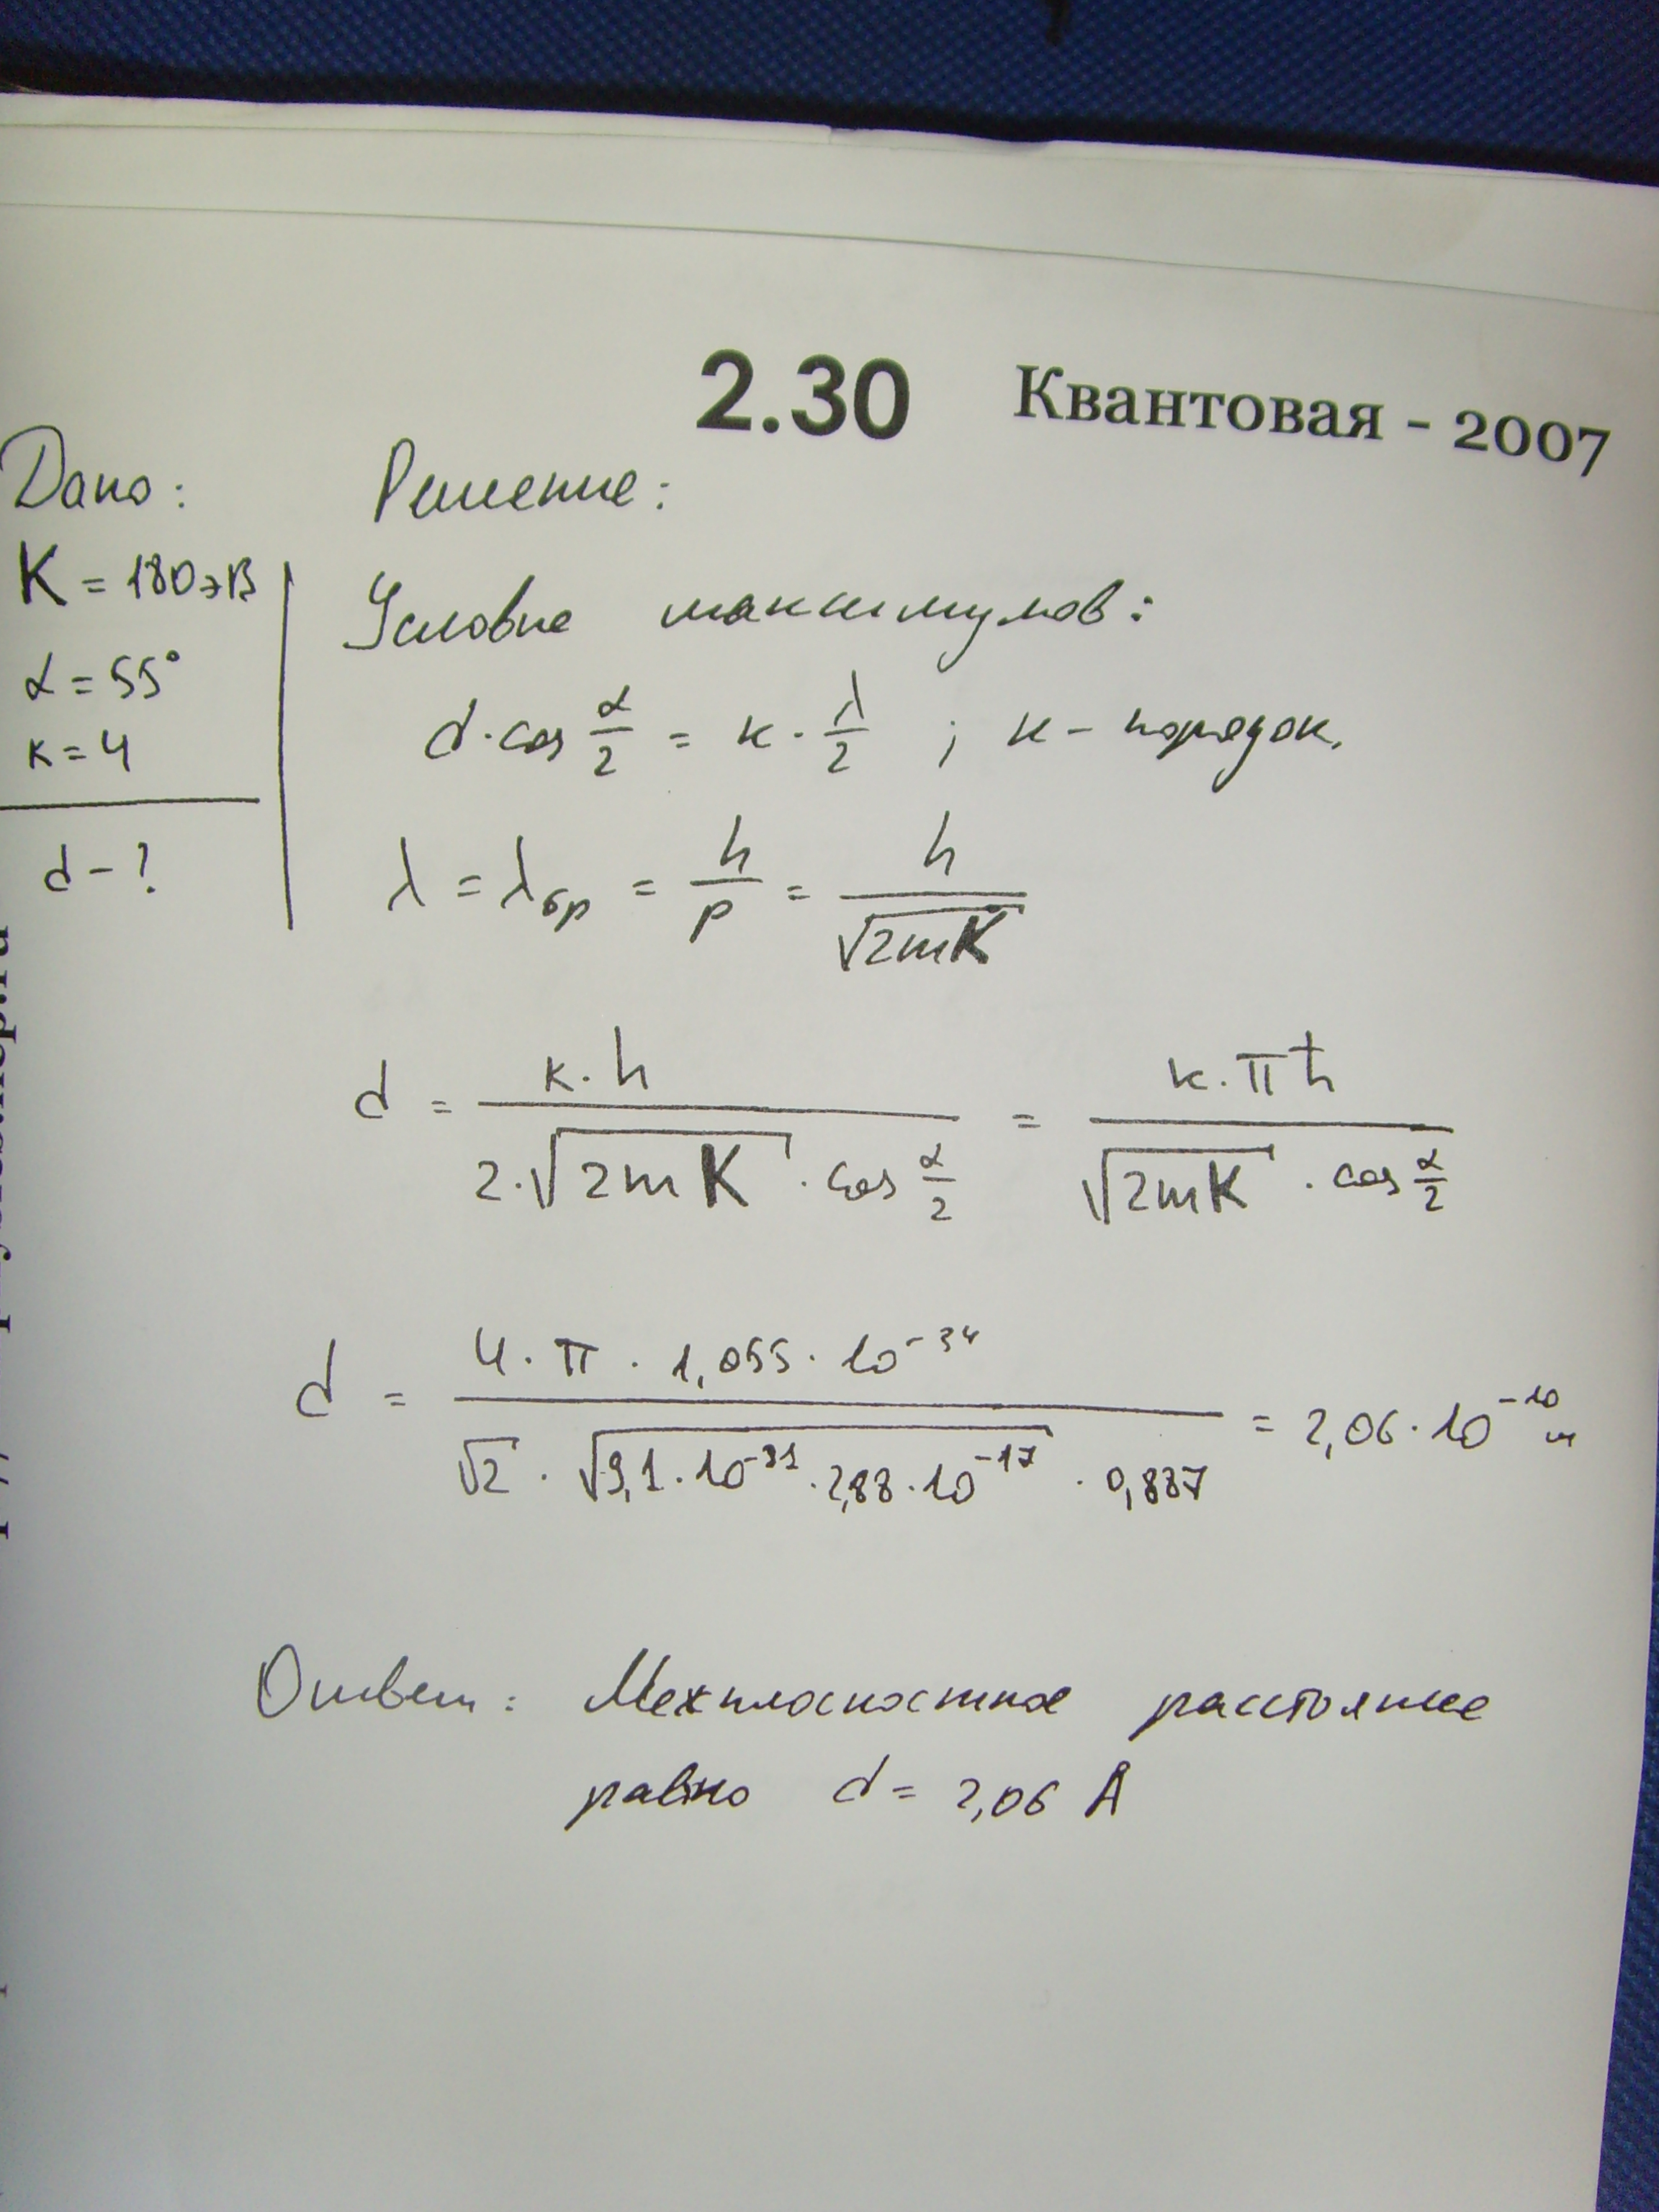 2.30 Квантовая - 2007
Дано: Решение:
K = 180 эВ
α = 55°
к = 4
d - ?
Условие максимумов:
d · cos α/2 = к · λ/2 ; к - порядок.
λ = λбр = h/p = h/√(2mK)
d = к · h / (2 · √(2mK) · cos α/2) = к · πħ / (√(2mK) · cos α/2)
d = 4 · π · 1,055 · 10⁻³⁴ / (√2 · √(9,1 · 10⁻³¹ · 2,88 · 10⁻¹⁷) · 0,887) = 2,06 · 10⁻¹⁰ м
Ответ: Межплоскостное расстояние
равно d = 2,06 Å